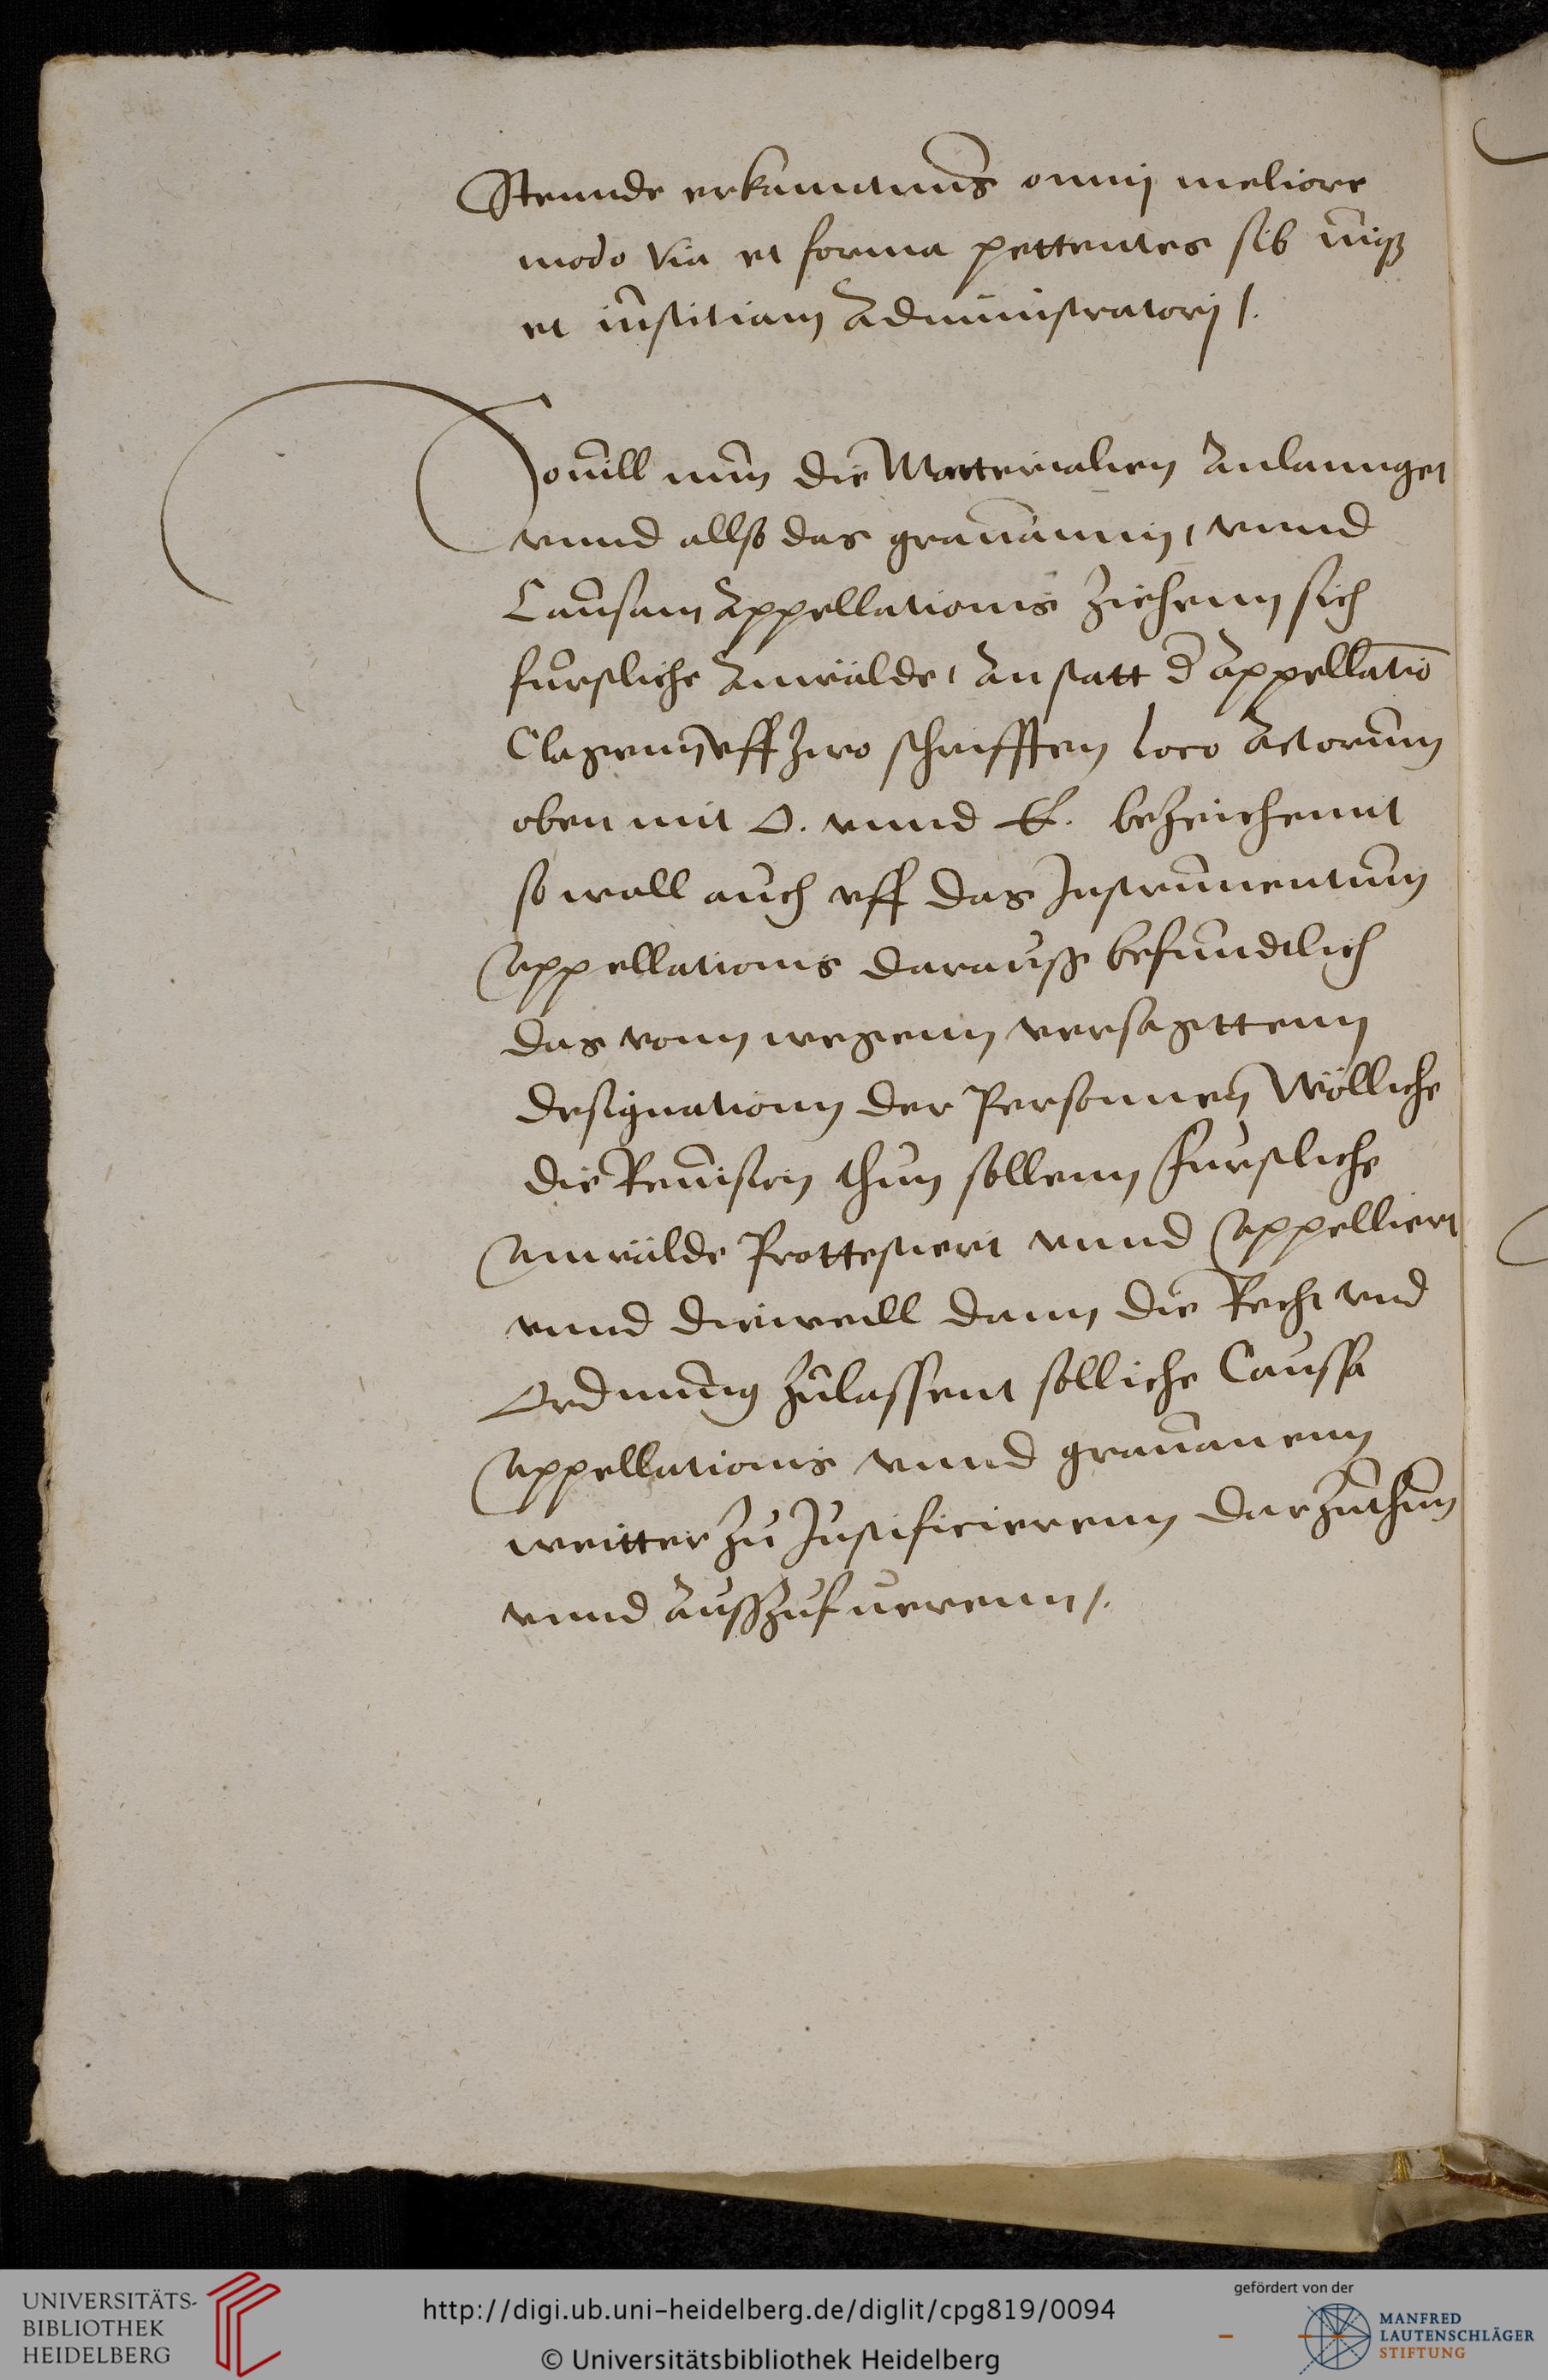 Stennde erkanntnus omnij meliore
modo via et forma pettentes sib
et iustitiam Administratorj /.
Souill nun die Matterialien Anlannget
vnnd allso das grauamin, vnnd
Causam Appellationis ziehenn sich
furstliche Anwälde, An statt d Appellatio
Clagenn vff zwo schrifften loco Actorum
oben mit D. vnnd E. bezeichennt
so woll auch vff das Instrumentum
Appellationis darauß befundtlich
das vonn wegenn versagttenn
designationn der Personnen Wölliche
die Reuision thun sollenn Furstliche
Anwälde Prottestiert vnnd Appelliert
vnnd dieweill dann die Recht vnd
Ordnung zulassent solliche Caussa
Appellationis vnnd grauamenn
weitter zu Justificierenn darzuthun
vnnd Außzufuerenn /.
UNIVERSITÄTS-
BIBLIOTHEK
HEIDELBERG
http://digi.ub.uni-heidelberg.de/diglit/cpg819/0094
© Universitätsbibliothek Heidelberg
gefördert von der
MANFRED
LAUTENSCHLÄGER
STIFTUNG